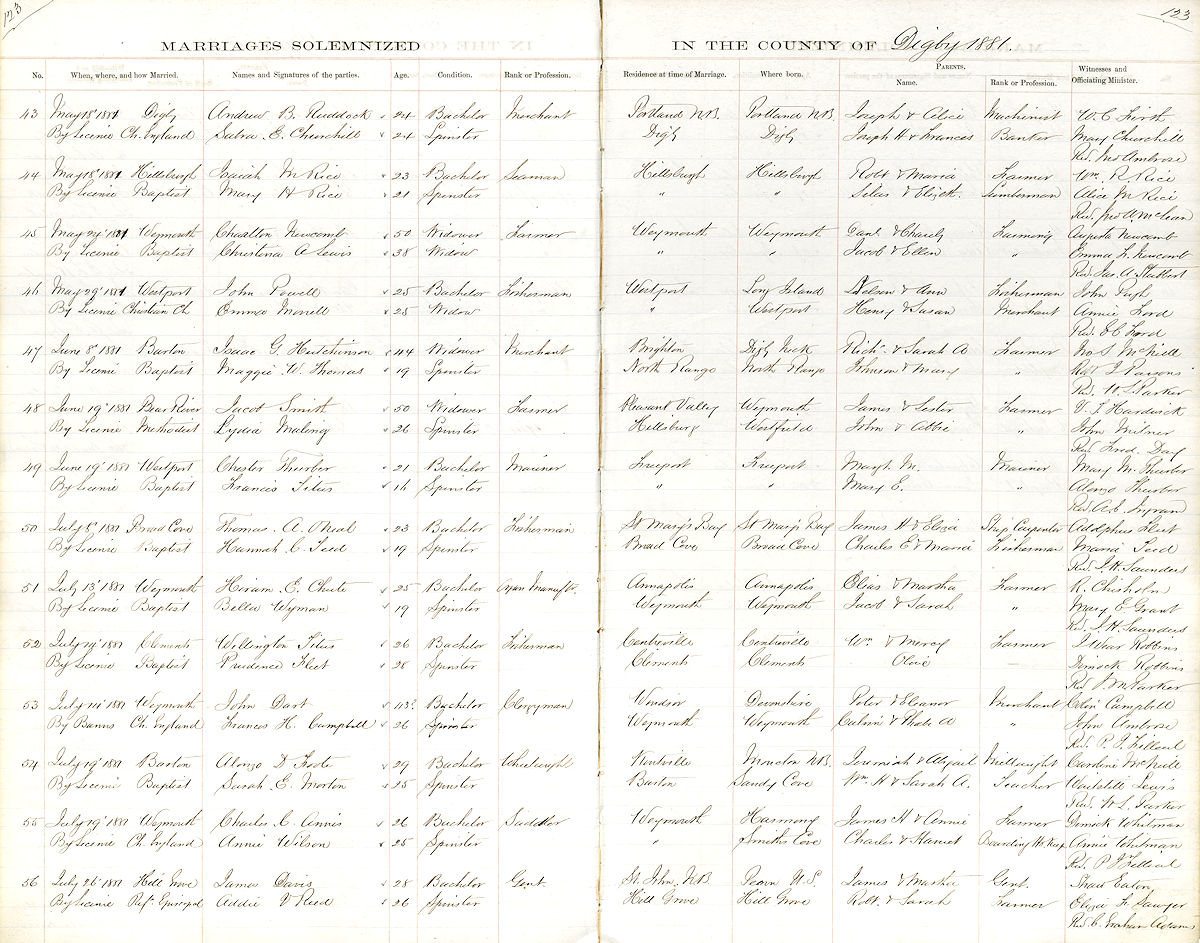 123
123
MARRIAGES SOLEMNIZED IN THE COUNTY OF Digby 1881.
No. When, where, and how Married. Names and Signatures of the parties. Age. Condition. Rank or Profession. Residence at time of Marriage. Where born. PARENTS. Name. Rank or Profession. Witnesses and Officiating Minister.
43 May 18 1881 Digby Andrew B. Ruddock 24 Bachelor Merchant Portland NB Portland NB Joseph & Alice Machinist W. C. Firth
By License Ch. England Sabra E. Churchill 24 Spinster Digby Digby Joseph H & Frances Banker Mary Churchill
Rev. Jno Ambrose
44 May 18 1881 Hillsburgh Isaiah M Rice 23 Bachelor Seaman Hillsburgh Hillsburgh Robt & Maria Farmer Wm. R Rice
By License Baptist Mary H Rice 21 Spinster " " Silas & Elizth. Lumberman Alice M Rice
Rev. Jno A McLean
45 May 24 1881 Weymouth Charlton Newcomb 50 Widower Farmer Weymouth Weymouth & Charity Farming Augusta Newcomb
By License Baptist Christina A Lewis 38 Widow " " Jacob & Ellen " Emma L. Newcomb
Rev. Jas. A.
46 May 29 1881 Westport John Powell 25 Bachelor Fisherman Westport Long Island Nelson & Ann Fisherman John Pugh
By License Christian Ch Emma Morrell 25 Widow " Westport Henry & Susan Merchant Annie Ford
Rev. E C Ford
47 June 8 1881 Barton Isaac G. Hutchinson 44 Widower Merchant Brighton Digby Neck Richd. & Sarah A Farmer Jno S McNeill
By License Baptist Maggie W. Thomas 19 Spinster North Range North Range Johnson & Mary " Robt J Parsons
Rev. W. L. Parker
48 June 19 1881 Bear River Jacob Smith 50 Widower Farmer Pleasant Valley Weymouth James & Lester Farmer V. T. Hardwick
By License Methodist Lydia Maloney 26 Spinster Hillsburg Westfield John & Abbie " John Milner
Rev. Fred. Day
49 June 19 1881 Westport Chester Thurber 21 Bachelor Mariner Freeport Freeport Margt M. Mariner Mary M. Thurber
By License Baptist Francis Titus 16 Spinster " " Mary E. " Alonzo Thurber
Rev. A. G. Ingram
50 July 8 1881 Broad Cove Thomas. A. ONeal 23 Bachelor Fisherman St Mary's Bay St Mary's Bay James H & Eliza Ship Carpenter Adolphus Fleet
By License Baptist Hannah C. Teed 19 Spinster Broad Cove Broad Cove Charles E & Maria Fisherman Maria Teed
Rev. J. H. Saunders
51 July 13 1881 Weymouth Hiram E. Chute 25 Bachelor Organ Manufr. Annapolis Annapolis Elias & Martha Farmer R. Chisholm
By License Baptist Bella Wyman 19 Spinster Weymouth Weymouth Jacob & Sarah " Mary E. Grant
Rev. J. H. Saunders
52 July 14 1881 Clements Wellington Titus 26 Bachelor Fisherman Centreville Centreville Wm & Mercy Farmer Robbins
By License Baptist Prudence Fleet 28 Spinster Clements Clements Olive — Dimock Robbins
Rev. Parker
53 July 14 1881 Weymouth John Dart 43? Bachelor Clergyman Windsor Devonshire Peter & Eleanor Merchant Colin Campbell
By Banns Ch. England Frances H. Campbell 26 Spinster Weymouth Weymouth & " John Ambrose
Rev. P. J. Filleul
54 July 19 1881 Barton Alonzo D Foote 29 Bachelor Wheelwright Kentville Moncton NB Jeremiah & Abigail Millwright Caroline McNeill
By License Baptist Sarah E. Morton 25 Spinster Barton Sandy Cove Wm. H & Sarah A. Teacher Lewis
Rev. W. L. Parker
55 July 19 1881 Weymouth Charles C. Annis 26 Bachelor Saddler Weymouth Harmony James H & Annie Farmer Dimock Whitman
By License Ch. England Annie Wilson 25 Spinster " Smiths Cove Charles & Harriet Boarding Hs. Keep Annie Whitman
Rev. P J Filleul
56 July 26 1881 Hill Grove James Davis 28 Bachelor Gent St. John, NB James & Martha Gent. Eaton
By License Ref. Episcopal Addie V Reed 26 Spinster Hill Grove Hill Grove Robt. & Sarah Farmer Eliza F. Sawyer
Rev. C. Graham Adams